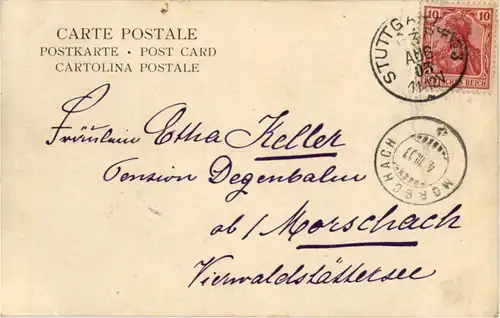 CARTE POSTALE
POSTKARTE · POST CARD
CARTOLINA POSTALE
10 10
STUTTGART
3
AUG
03
11-12N
REICH
MORSCHACH
4. VIII. 03
Fräulein Etha Keller
Pension Degenbalm
ob / Morschach
Vierwaldstättersee